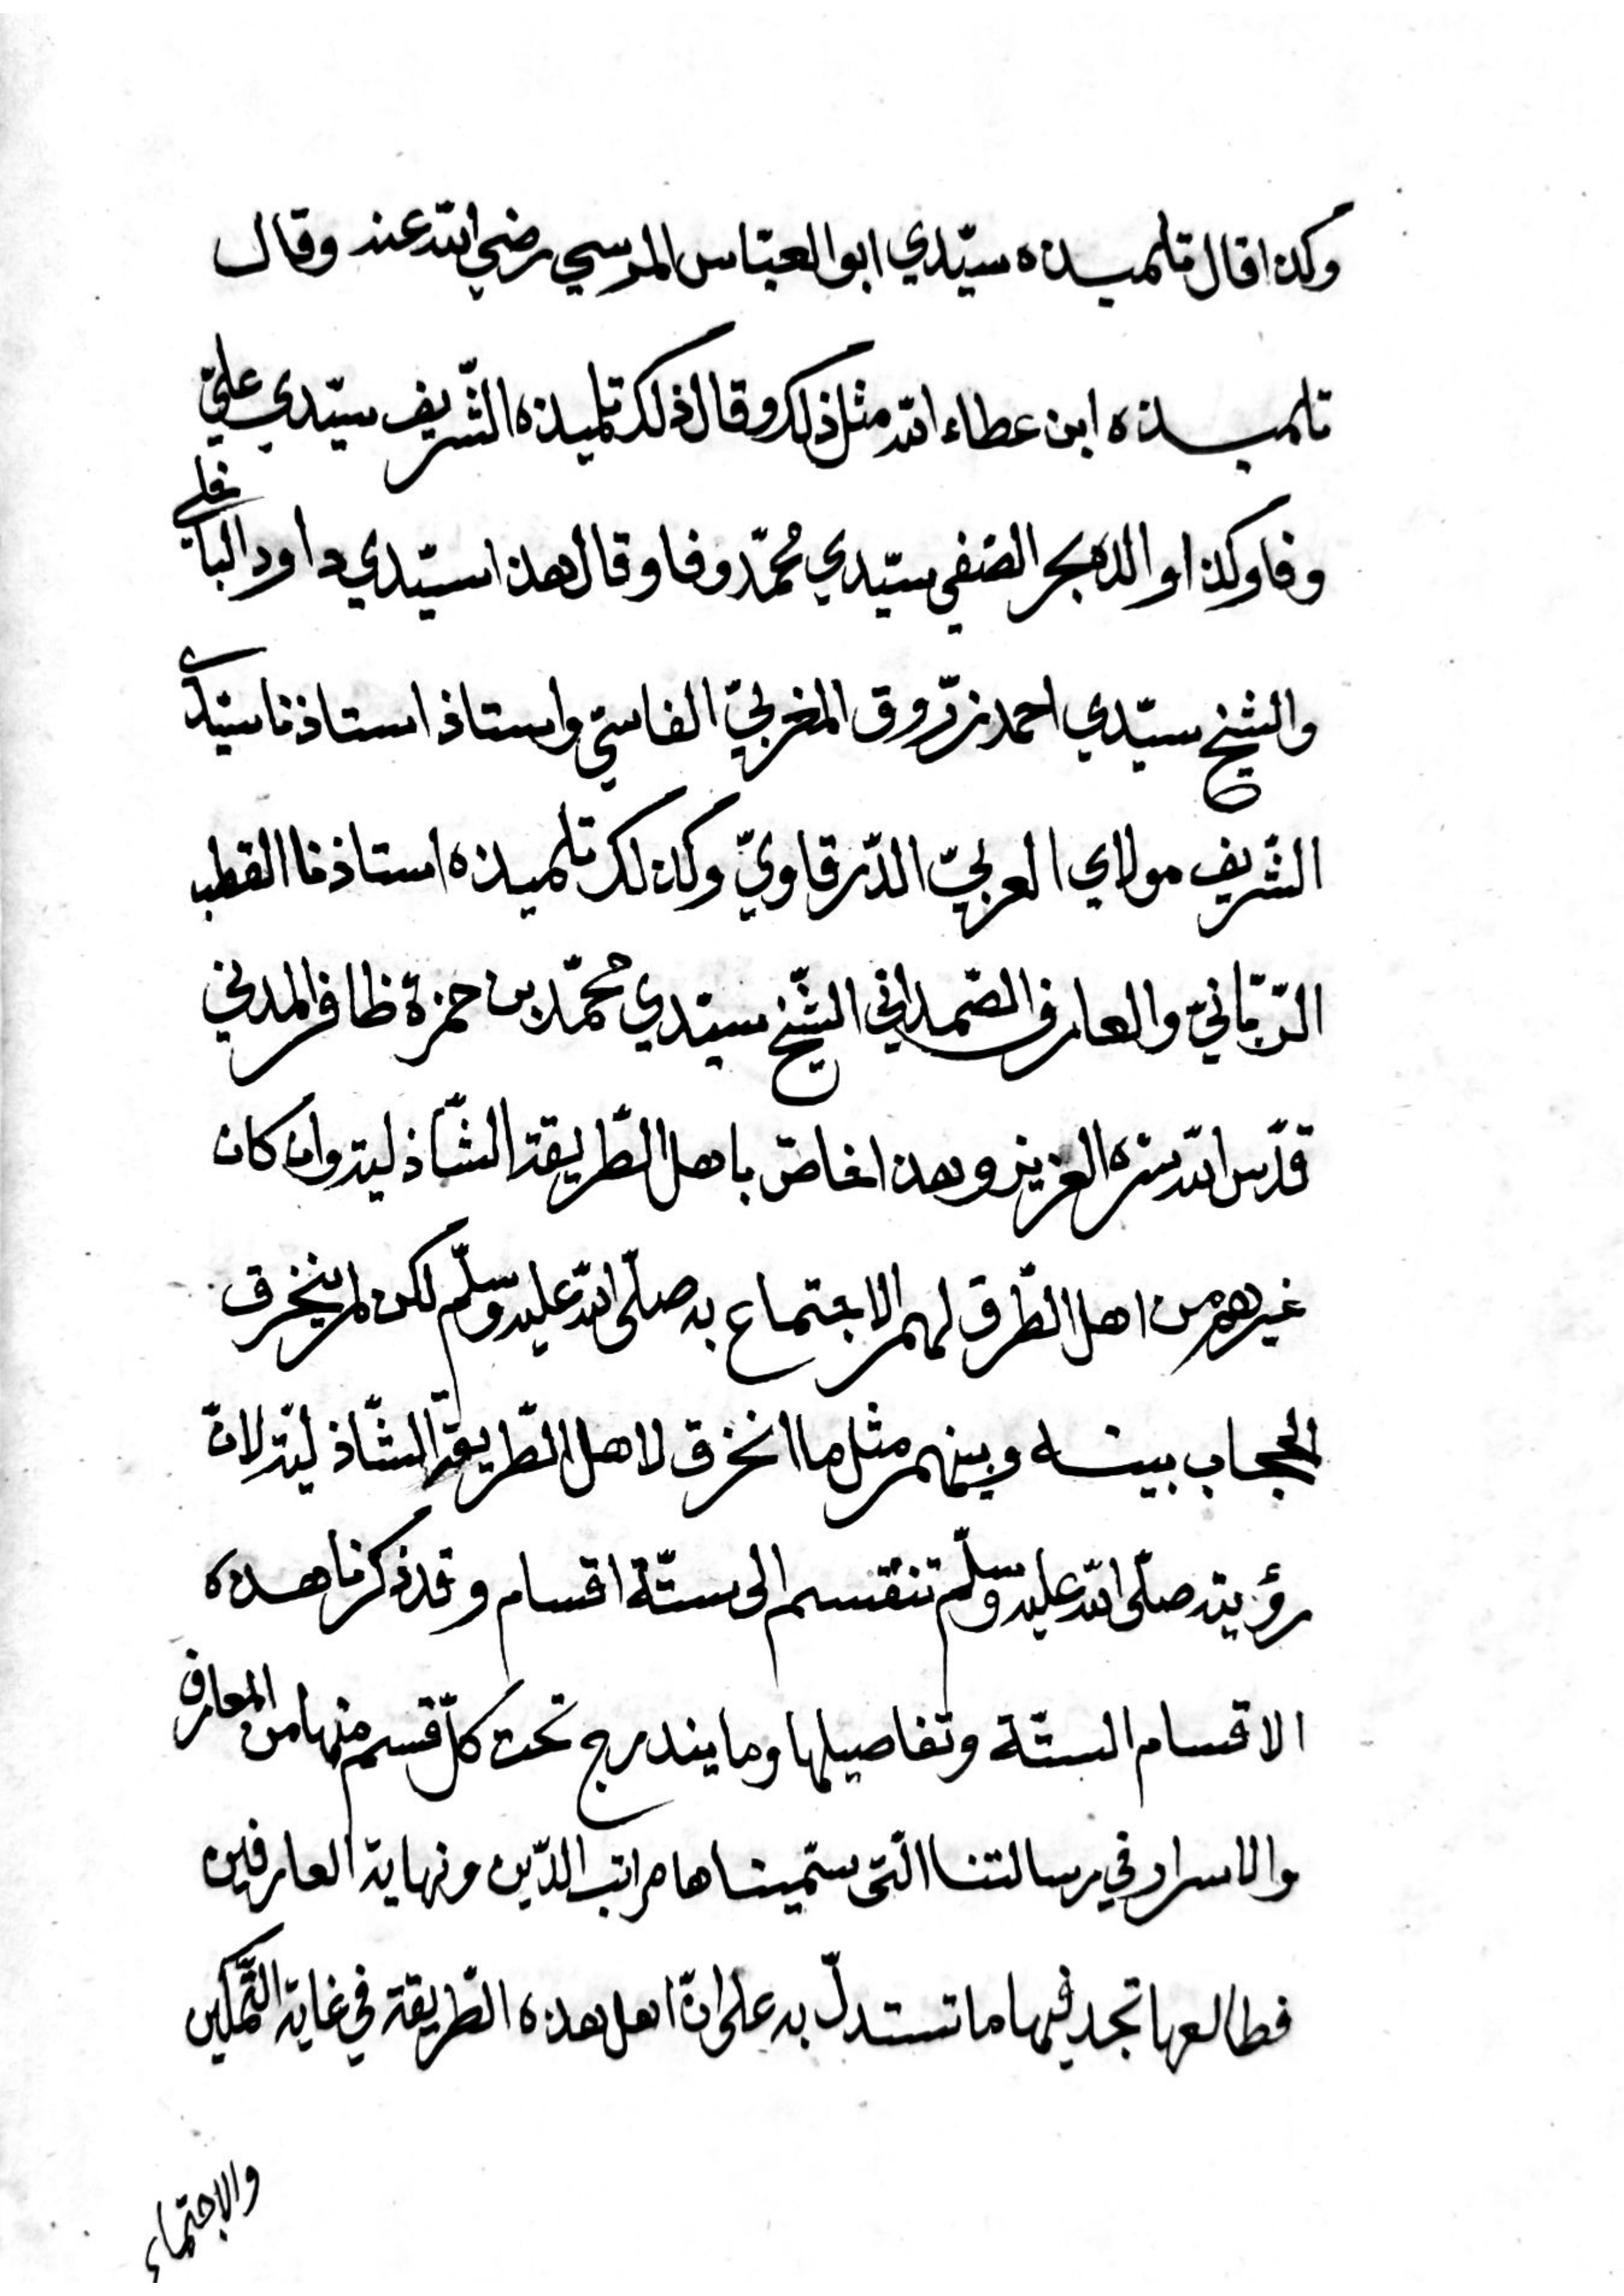 وكذا قال تلميذه سيّدي ابو العبّاس المرسي رضي الله عنه وقال
تلميذه ابن عطاء الله مثل ذلك وقال ذلك تلميذه الشّريف سيّدي عليّ
وفا وكذا والده بحر الصّفى سيّدي محمّد وفا وقال هذا سيّدي داود الباخلي
والشيخ سيّدي احمد زرّوق المغربيّ الفاسيّ واستاذ استاذنا سيّدي
الشّريف مولاي العربيّ الدّرقاويّ وكذلك تلميذه استاذنا القطب
الرّبّانيّ والعارف الصّمداني الشّيخ سيّدي محمّد بن حمزة ظافر المدني
قدّس الله سرّه العزيز وهذا خاصّ باهل الطّريقة الشّاذليّة وان كان
غيرهم من اهل الطّرق لهم الاجتماع به صلّى الله عليه وسلّم لكن لم ينخرق
الحجاب بينه وبينهم مثل ما انخرق لاهل الطّريقة الشّاذليّة لانّ
رؤيته صلّى الله عليه وسلّم تنقسم الى ستّة اقسام وقد ذكرنا هذه
الاقسام الستّة وتفاصيلها وما يندرج تحت كلّ قسم منها من المعارف
والاسرار في رسالتنا الّتى سمّيناها مراتب الدّين ونهاية العارفين
فطالعها تجد فيها ما تستدلّ به على انّ اهل هذه الطّريقة في غاية التّمكين
والاجتماع